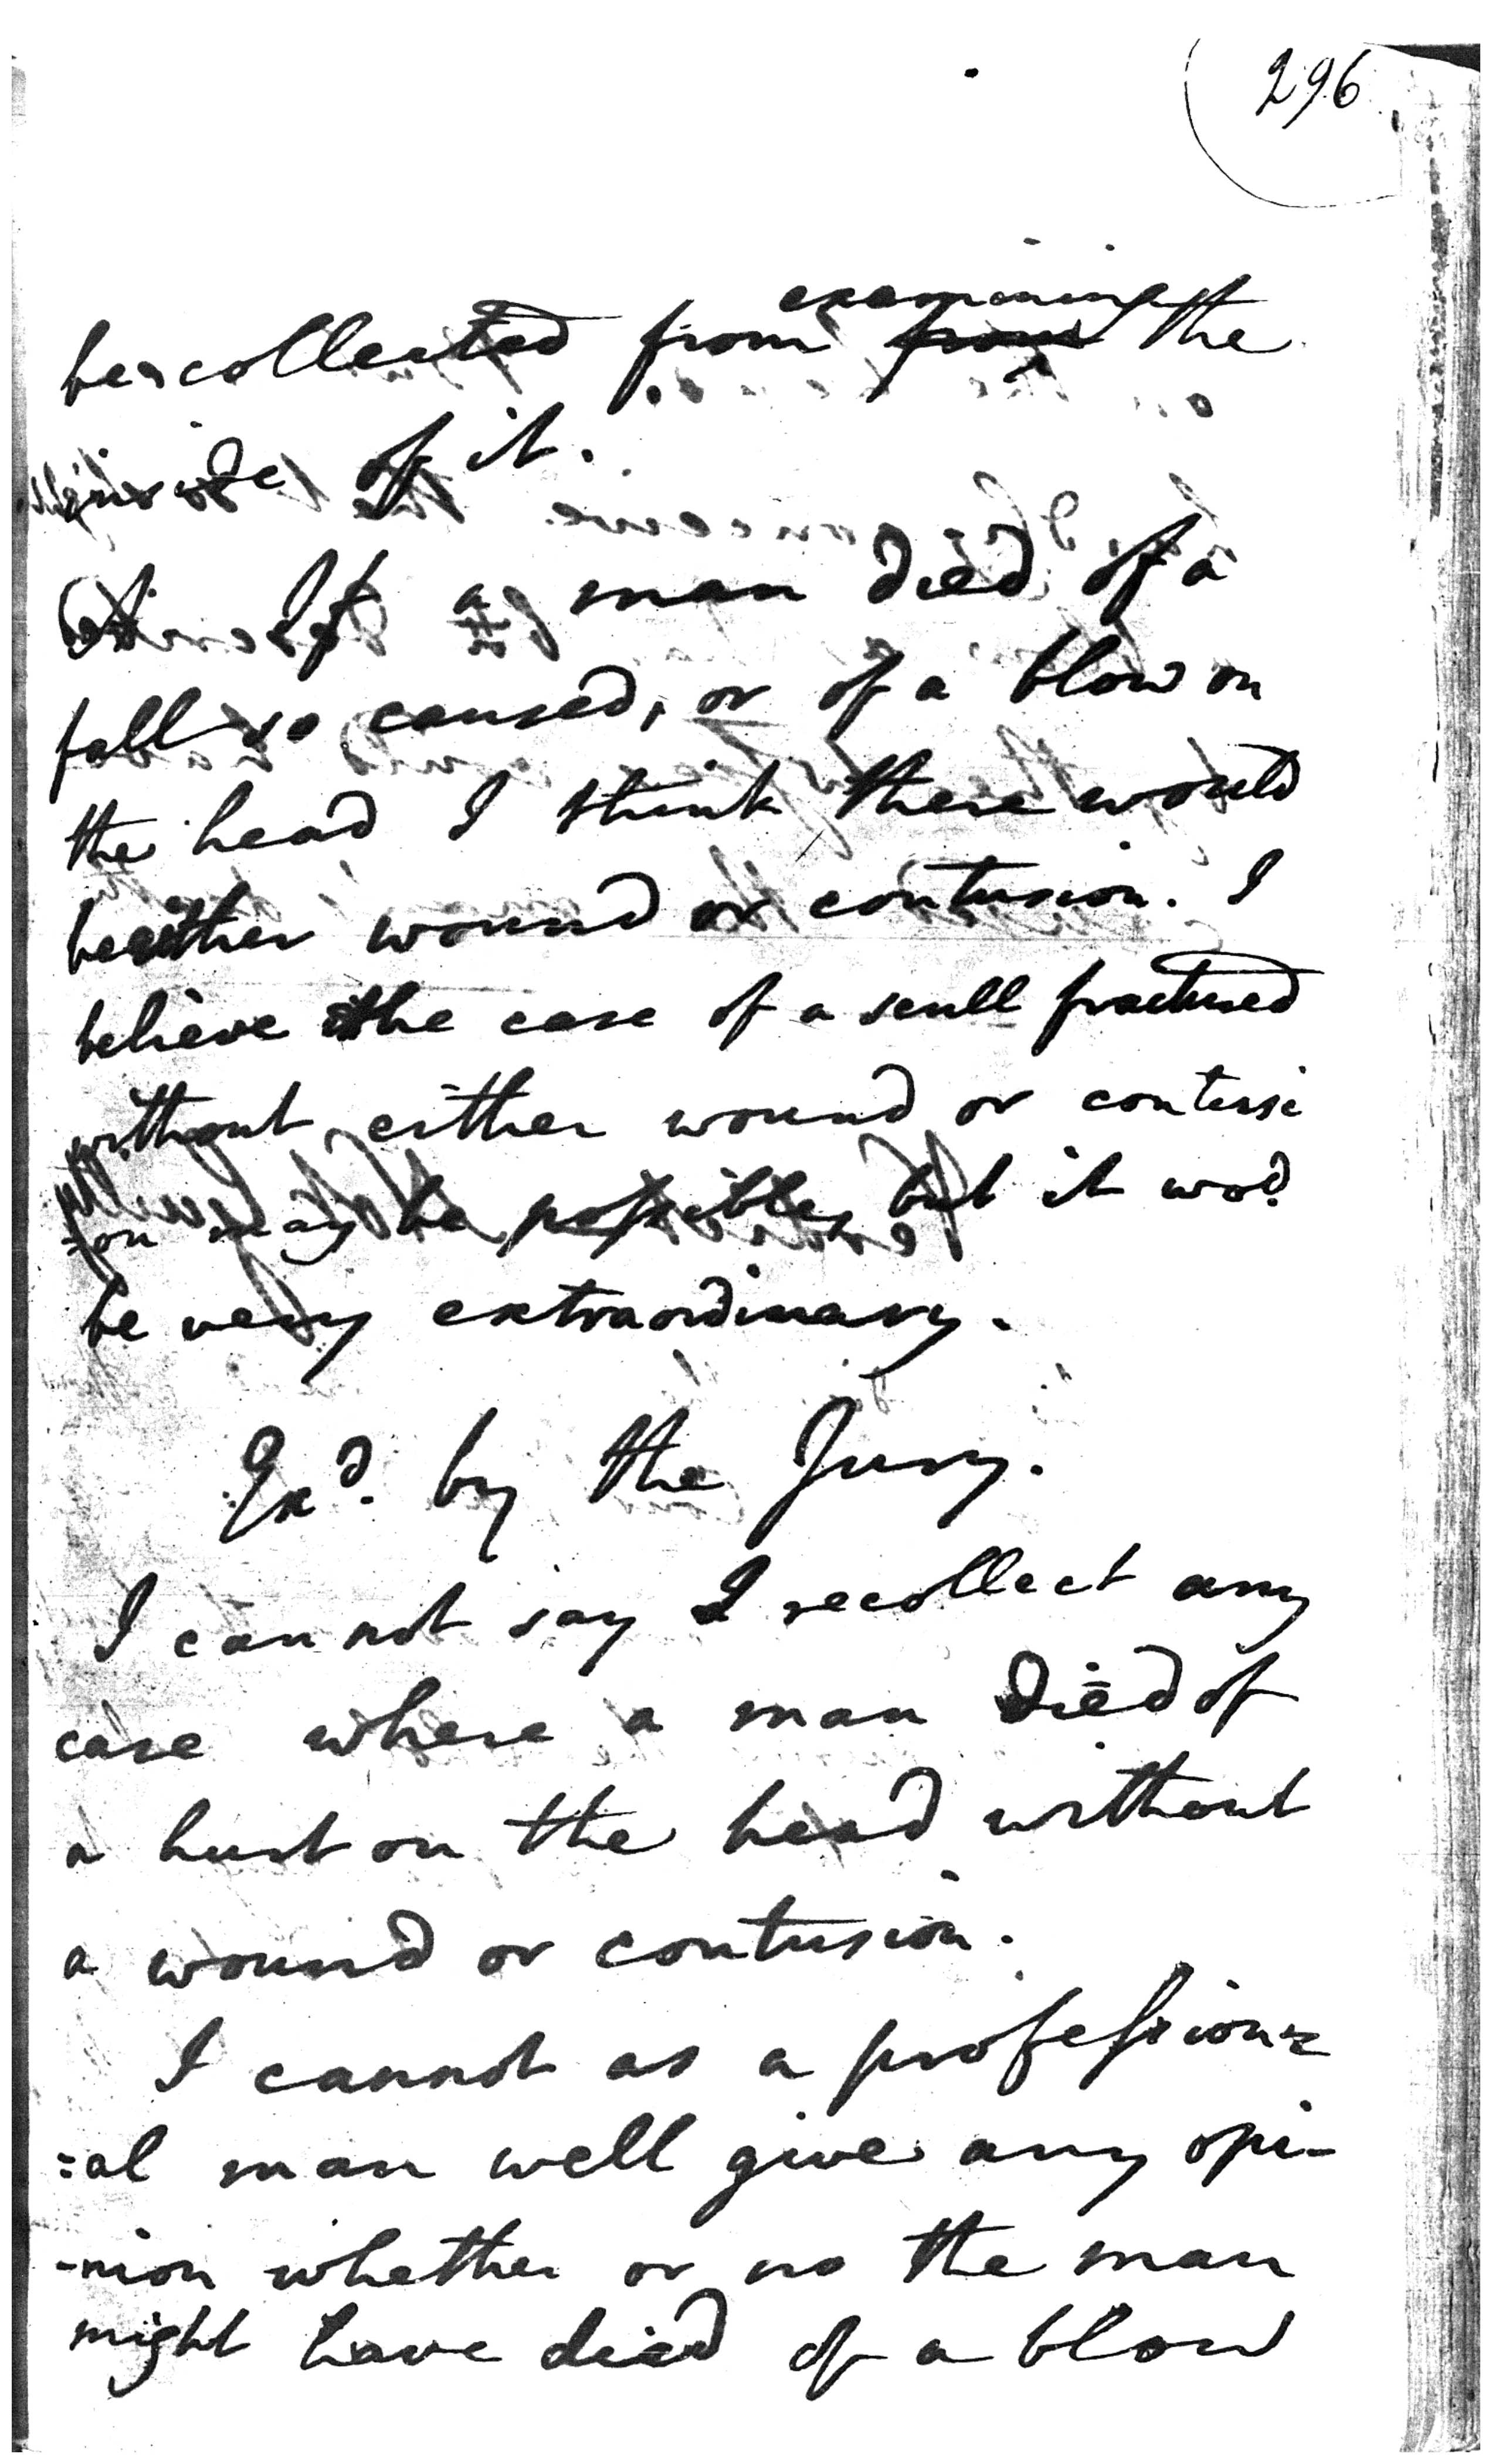 296
be collected from examining the
inside of it.
If a man died of a
fall so caused, or of a blow on
the head I think there would
be either wound or contusion. I
believe the case of a scull fractured
without either wound or contusi
-on may be possible, but it wod
be very extraordinary.
Exd. by the Jury.
I cannot say I recollect any
case where a man died of
a hurt on the head without
a wound or contusion.
I cannot as a profession=
=al man well give any opi-
-nion whether or no the man
might have died of a blow